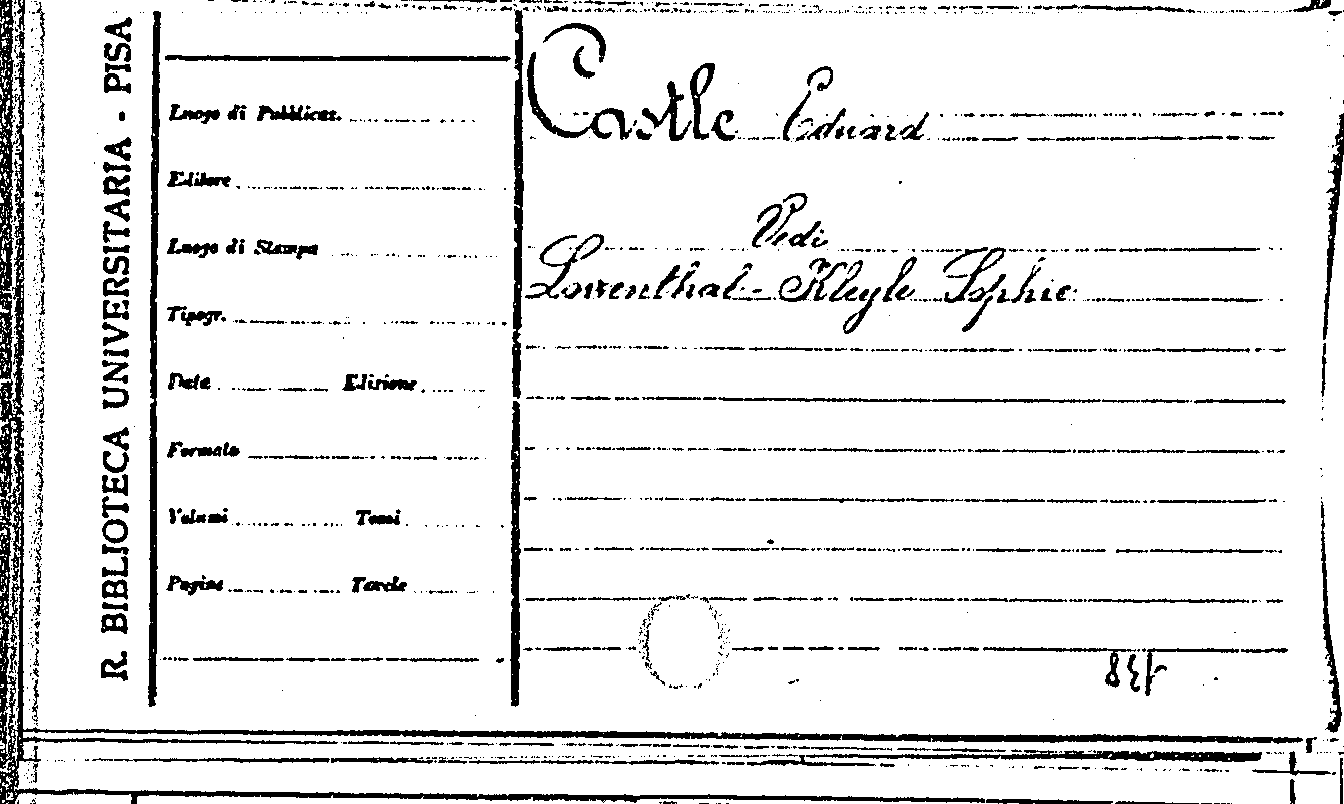 R. BIBLIOTECA UNIVERSITARIA - PISA
Luogo di Pubblicaz.
Editore
Luogo di Stampa
Tipogr.
Data Edizione
Formato
Volumi Tomi
Pagine Tavole
Castle Eduard
Vedi
Lowenthal-Kleyle Sophie